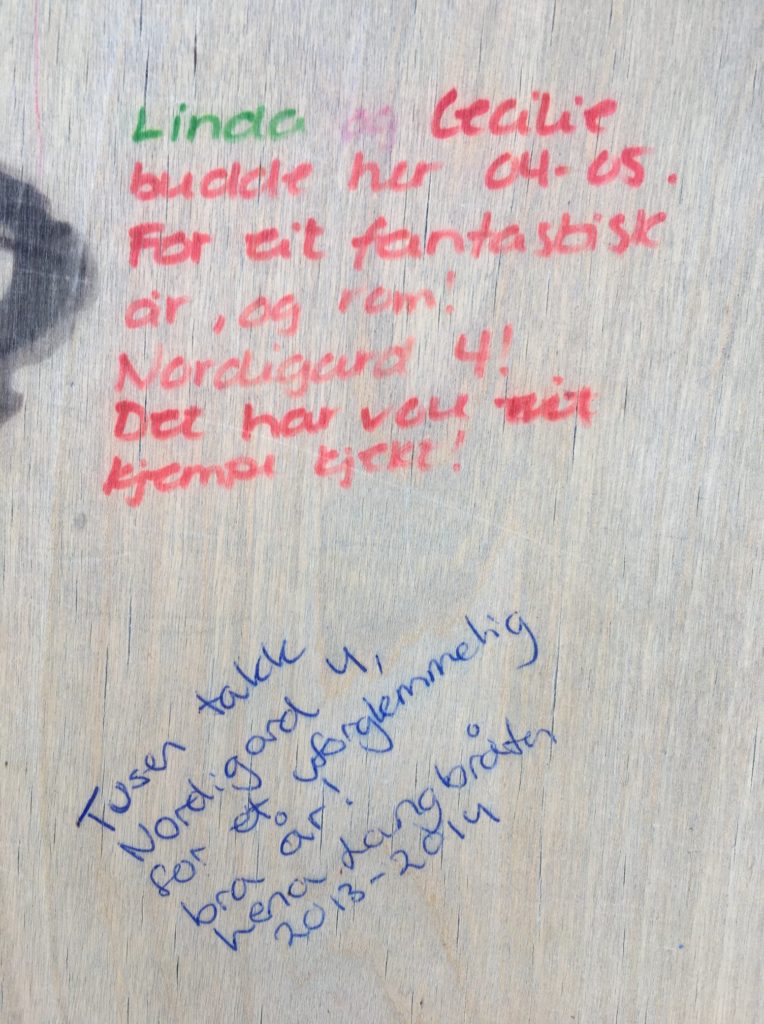 Linda og Cecilie
budde her 04-05.
For eit fantastisk
år, og rom!
Nordigard 4!
Det har vou
kjempe kjekt!
Tusen takk
Nordigard 4,
for et uforglemmelig
bra år!
Langbråten
2013-2014